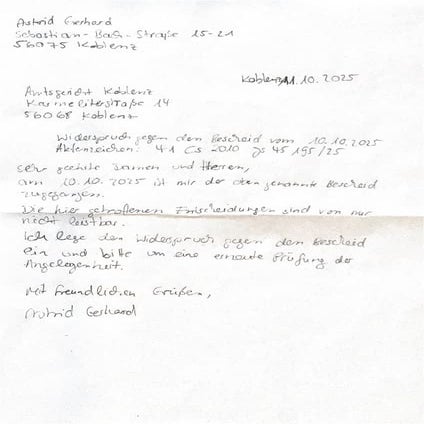 Astrid Gerhard
Sebastian-Bach-Straße 15-21
56075 Koblenz
Koblenz, 11.10.2025
Amtsgericht Koblenz
Karmeliterstraße 14
56068 Koblenz
Widerspruch gegen den Bescheid vom 10.10.2025
Aktenzeichen: 41 Cs 2010 Js 45195/25
Sehr geehrte Damen und Herren,
am 10.10.2025 ist mir der oben genannte Bescheid
zugegangen.
Die hier getroffenen Entscheidungen sind von mir
nicht leistbar.
Ich lege den Widerspruch gegen den Bescheid
ein und bitte um eine erneute Prüfung der
Angelegenheit.
Mit freundlichen Grüßen,
Astrid Gerhard